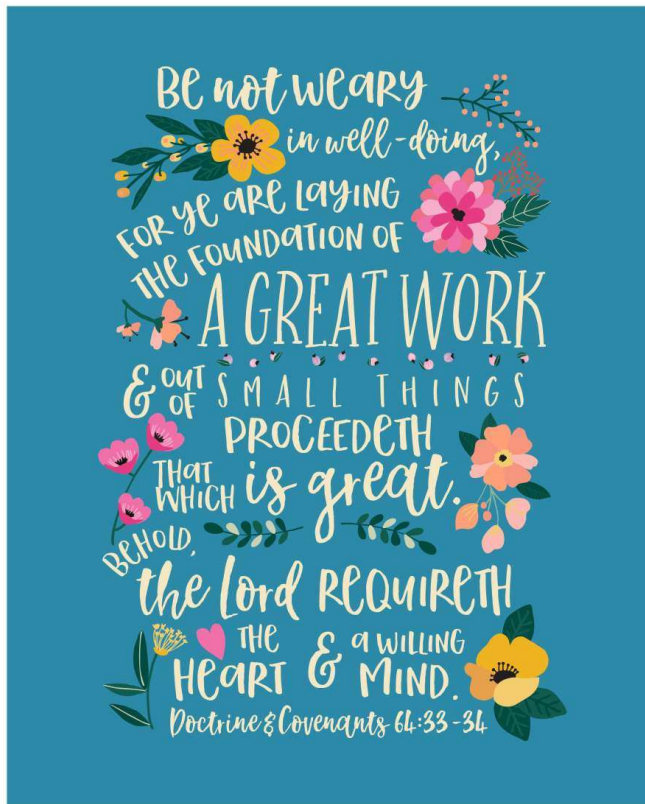 BE not WEARY
in well-doing,
FOR YE ARE LAYING
THE FOUNDATION OF
A GREAT WORK
& OUT OF SMALL THINGS
PROCEEDETH
THAT WHICH is great.
BEHOLD,
the Lord REQUIRETH
THE HEART & A WILLING MIND.
Doctrine & Covenants 64:33-34